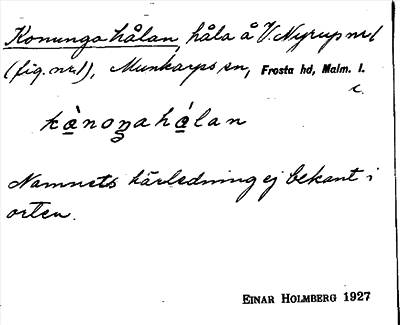 Konungahålan, håla å V. Nyrup nr 1
(fig. nr. 1), Munkarps sn, Frosta hd, Malm. l.
c.
kònoŋahålan
Namnets härledning ej bekant i
orten.
EINAR HOLMBERG 1927